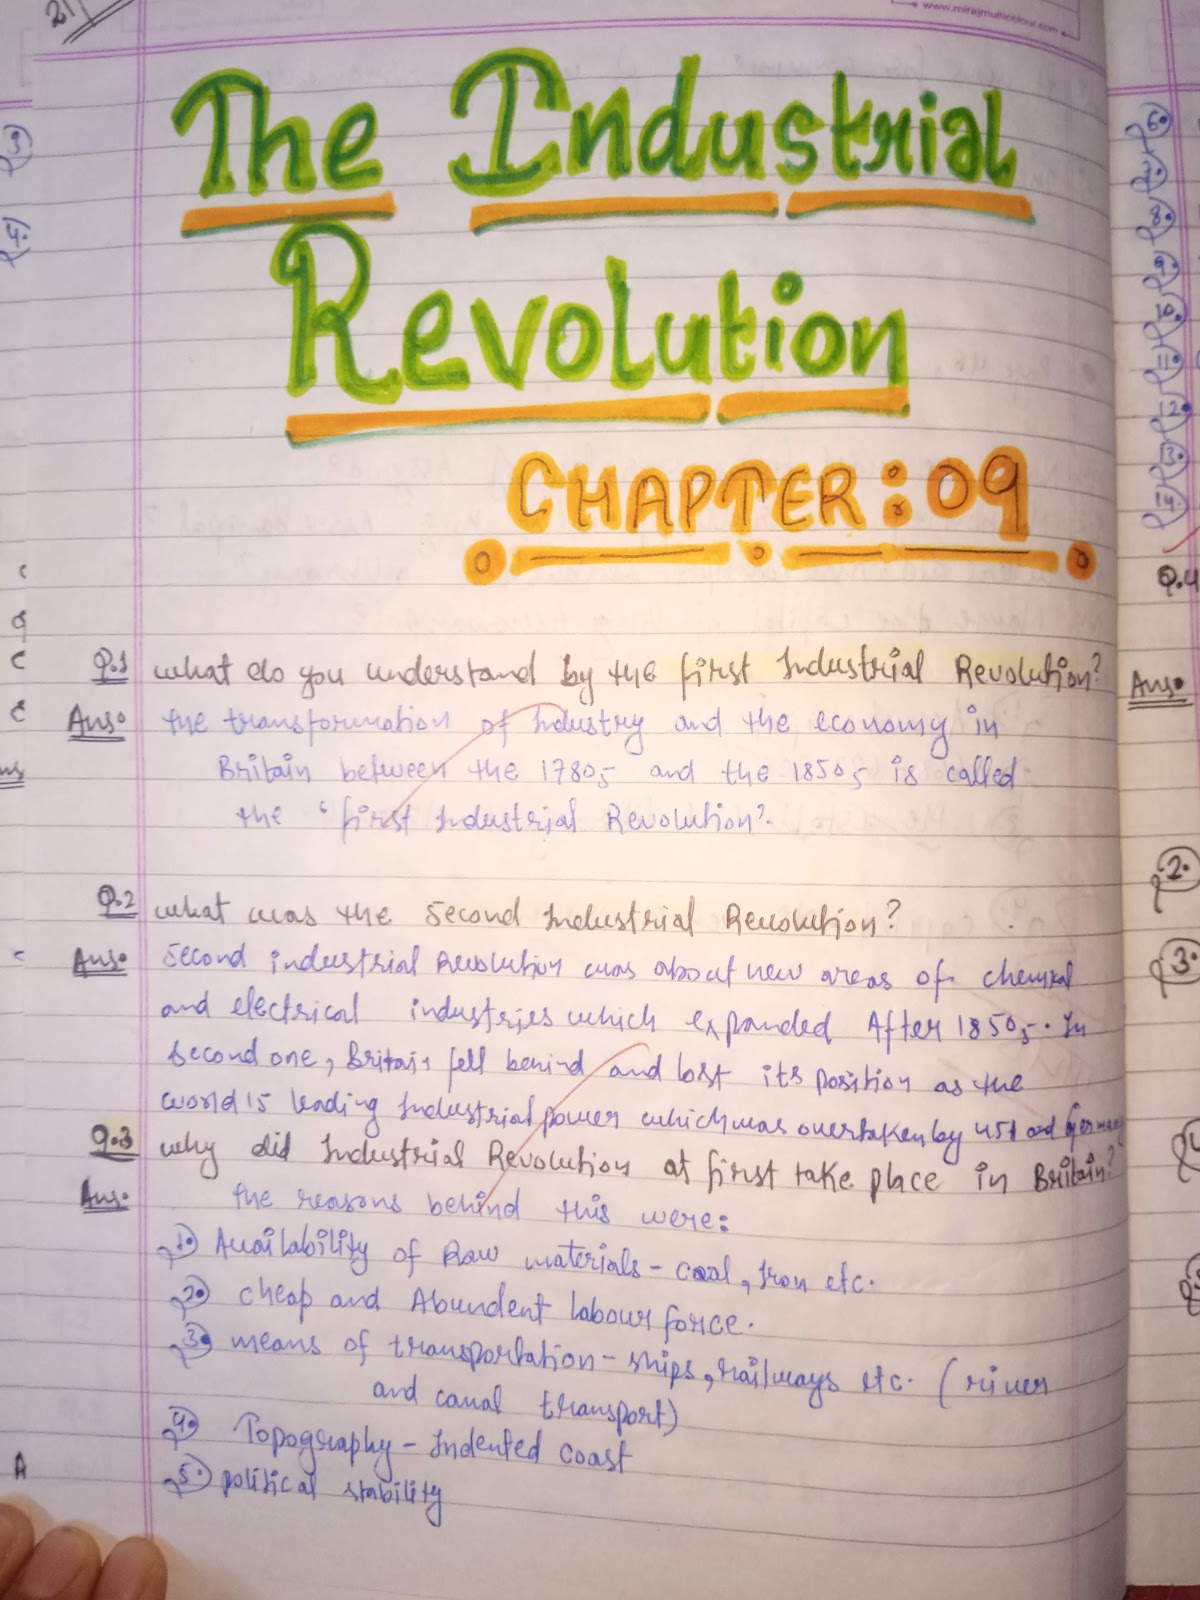 21
www.mirajmulticolour.com
The Industrial
Revolution
CHAPTER: 09
Q.1 What do you understand by the first Industrial Revolution?
Ans: The transformation of Industry and the economy in
Britain between the 1780s and the 1850s is called
the 'first Industrial Revolution'.
Q.2 What was the Second Industrial Revolution?
Ans: Second industrial Revolution was about new areas of chemical
and electrical industries which expanded After 1850s. In
Second one, Britain fell behind and lost its position as the
world's leading Industrial power which was overtaken by USA and Germany
Q.3 Why did Industrial Revolution at first take place in Britain?
Ans: The reasons behind this were:
1. Availability of Raw materials - coal, Iron etc.
2. Cheap and Abundent labour force.
3. means of transportation - ships, railways etc. (river
and canal transport)
4. Topography - Indented coast
5. political stability
6.
7.
8.
9.
10.
11.
12.
13.
14.
Q.4
Ans:
2.
3.